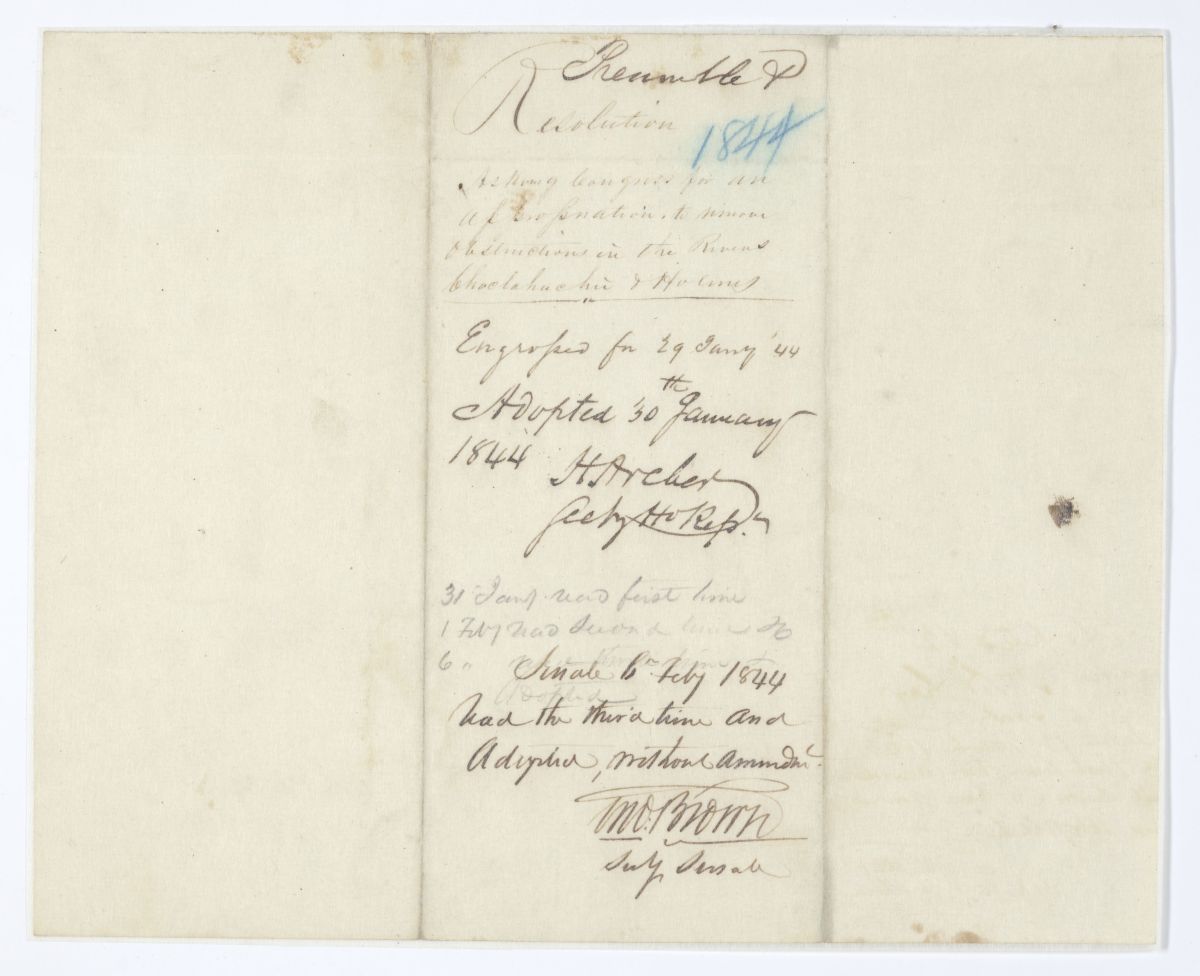 Preamble &
Resolution
1844
Asking Congress for an
appropriation to remove
obstructions in the Rivers
Choctahachie & Holmes
Engrossed for 29 Jany '44
Adopted 30th January
1844
H Archer
Secty Ho Reps.
31 Jany read first time
1 Feby read Second time
6 "
Adopted
Senate 6th Feby 1844
Read the third time and
Adopted, without amendt.
Tho. Brown
Secty Senate